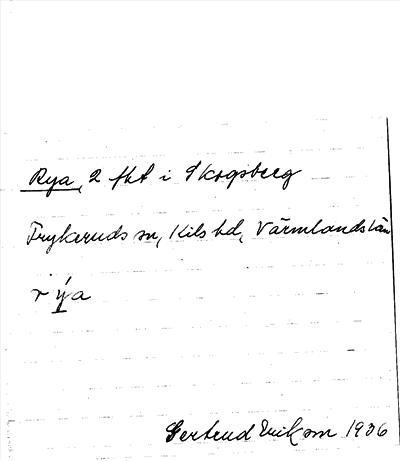 Rya, 2 fht i Skogsberg
Frykeruds sn, Kils hd, Värmlands län
rýa
Gertrud Erikson 1936